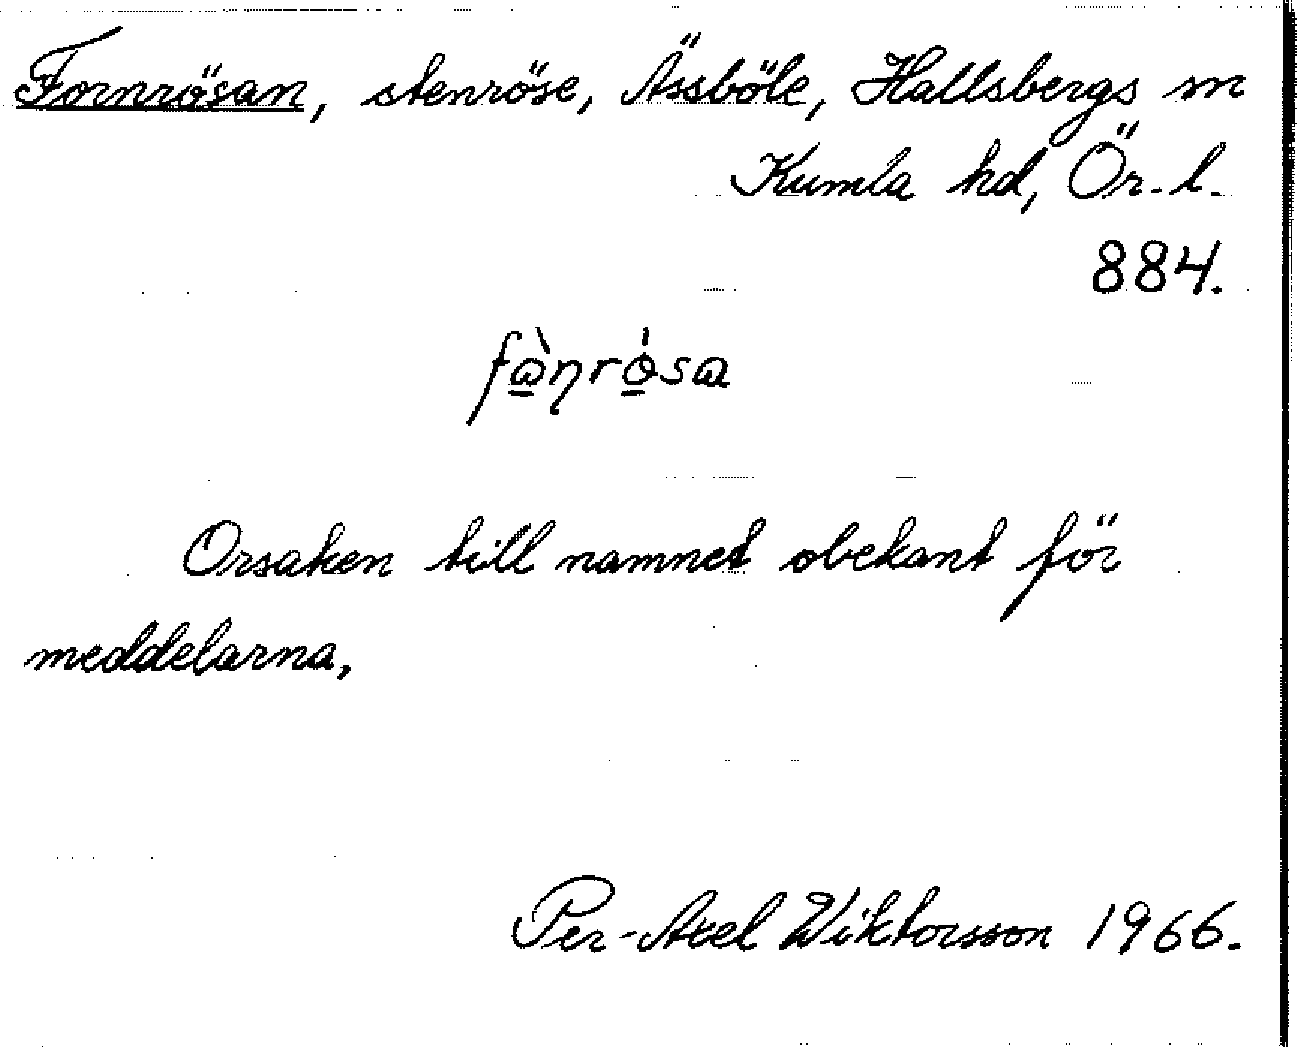 Fornrösan, stenröse, Ässböle, Hallsbergs sn
Kumla hd, Ör. l.
884.
Orsaken till namnet obekant för
meddelarna,
Per-Axel Wiktorsson 1966.